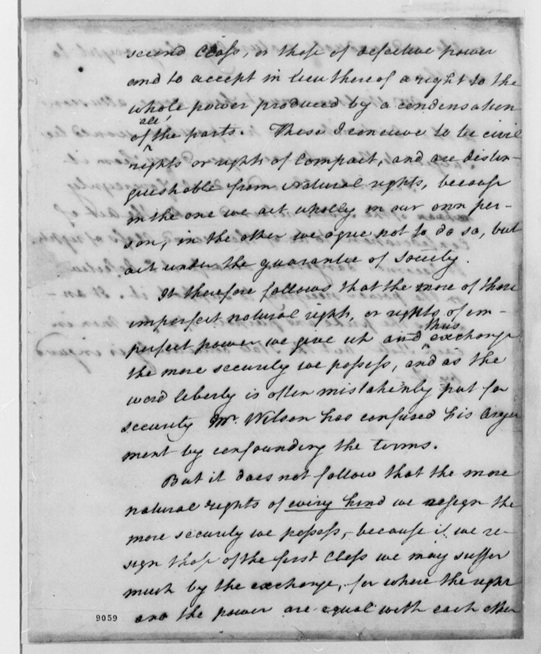 second Class, or those of defective power
and to accept in lieu thereof a right to the
whole power produced by a condensation
all
of the parts. These I conceive to be civil
rights or rights of Compact, and are distin-
guishable from Natural rights, because
in the one we act wholly in our own per-
son, in the other we agree not to do so, but
act under the guarantee of society.
It therefore follows that the more of those
imperfect natural rights, or rights of im-
thus
perfect power we give up and exchange
the more security we possess, and as the
word liberty is often mistakenly put for
security Mr. Wilson has confused his Argu
ment by confounding the terms.
But it does not follow that the more
natural rights of every kind we resign the
more security we possess,- because if we re-
sign those of the first Class we may suffer
much by the exchange, for where the right
and the power are equal with each other
9059